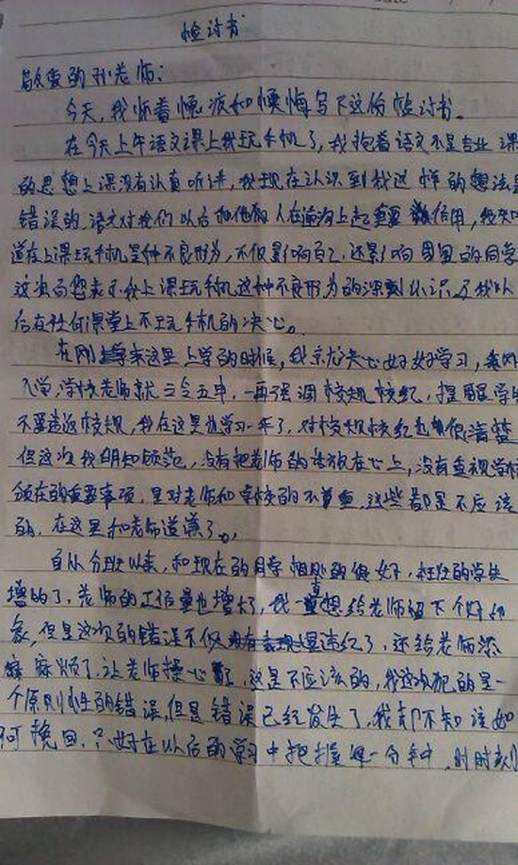 检讨书
敬爱的孙老师：
今天，我怀着愧疚和懊悔写下这份检讨书。
在今天上午语文课上我玩手机了，我抱着语文不是专业课
的思想上课没有认真听讲，我现在认识到我这样的想法是
错误的，语文对我们以后和他人在沟通上起重要作用，我知
道在上课玩手机是种不良形为，不仅影响自己，还影响周围的同学
这次向您表示我上课玩手机这种不良形为的深刻认识及我以
后在任何课堂上不玩手机的决心。
在刚来这里上学的时候，我就决心好好学习，
入学，学校老师就三令五申，一再强调校规校纪，提醒学生
不要违反校规，我在这里也学习一年了，对校规校纪也很清楚
但这次我明知故范，没有把老师的话放在心上，没有重视学校
颁布的重要事项，是对老师和学校的不尊重，这些都是不应该
的，在这里和老师道谦了。
自从分班以来，和现在的同学相处的很好，班里的学生
增多了，老师的工作量也增大了，我一直想给老师留下个好印
象，但是这次的错误不仅违纪了，还给老师添
麻烦了，让老师操心了，这是不应该的，我这次犯的是一
个原则性的错误，但是错误已经发生了，我却不知该如
何挽回，只好在以后的学习中把握每一分钟，时时刻刻